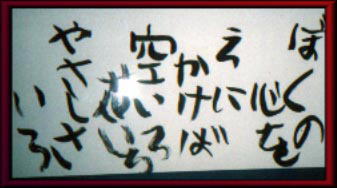 ぼくの
心を
えに
かけば
空いろ
花いろ
やさしさ
いろ